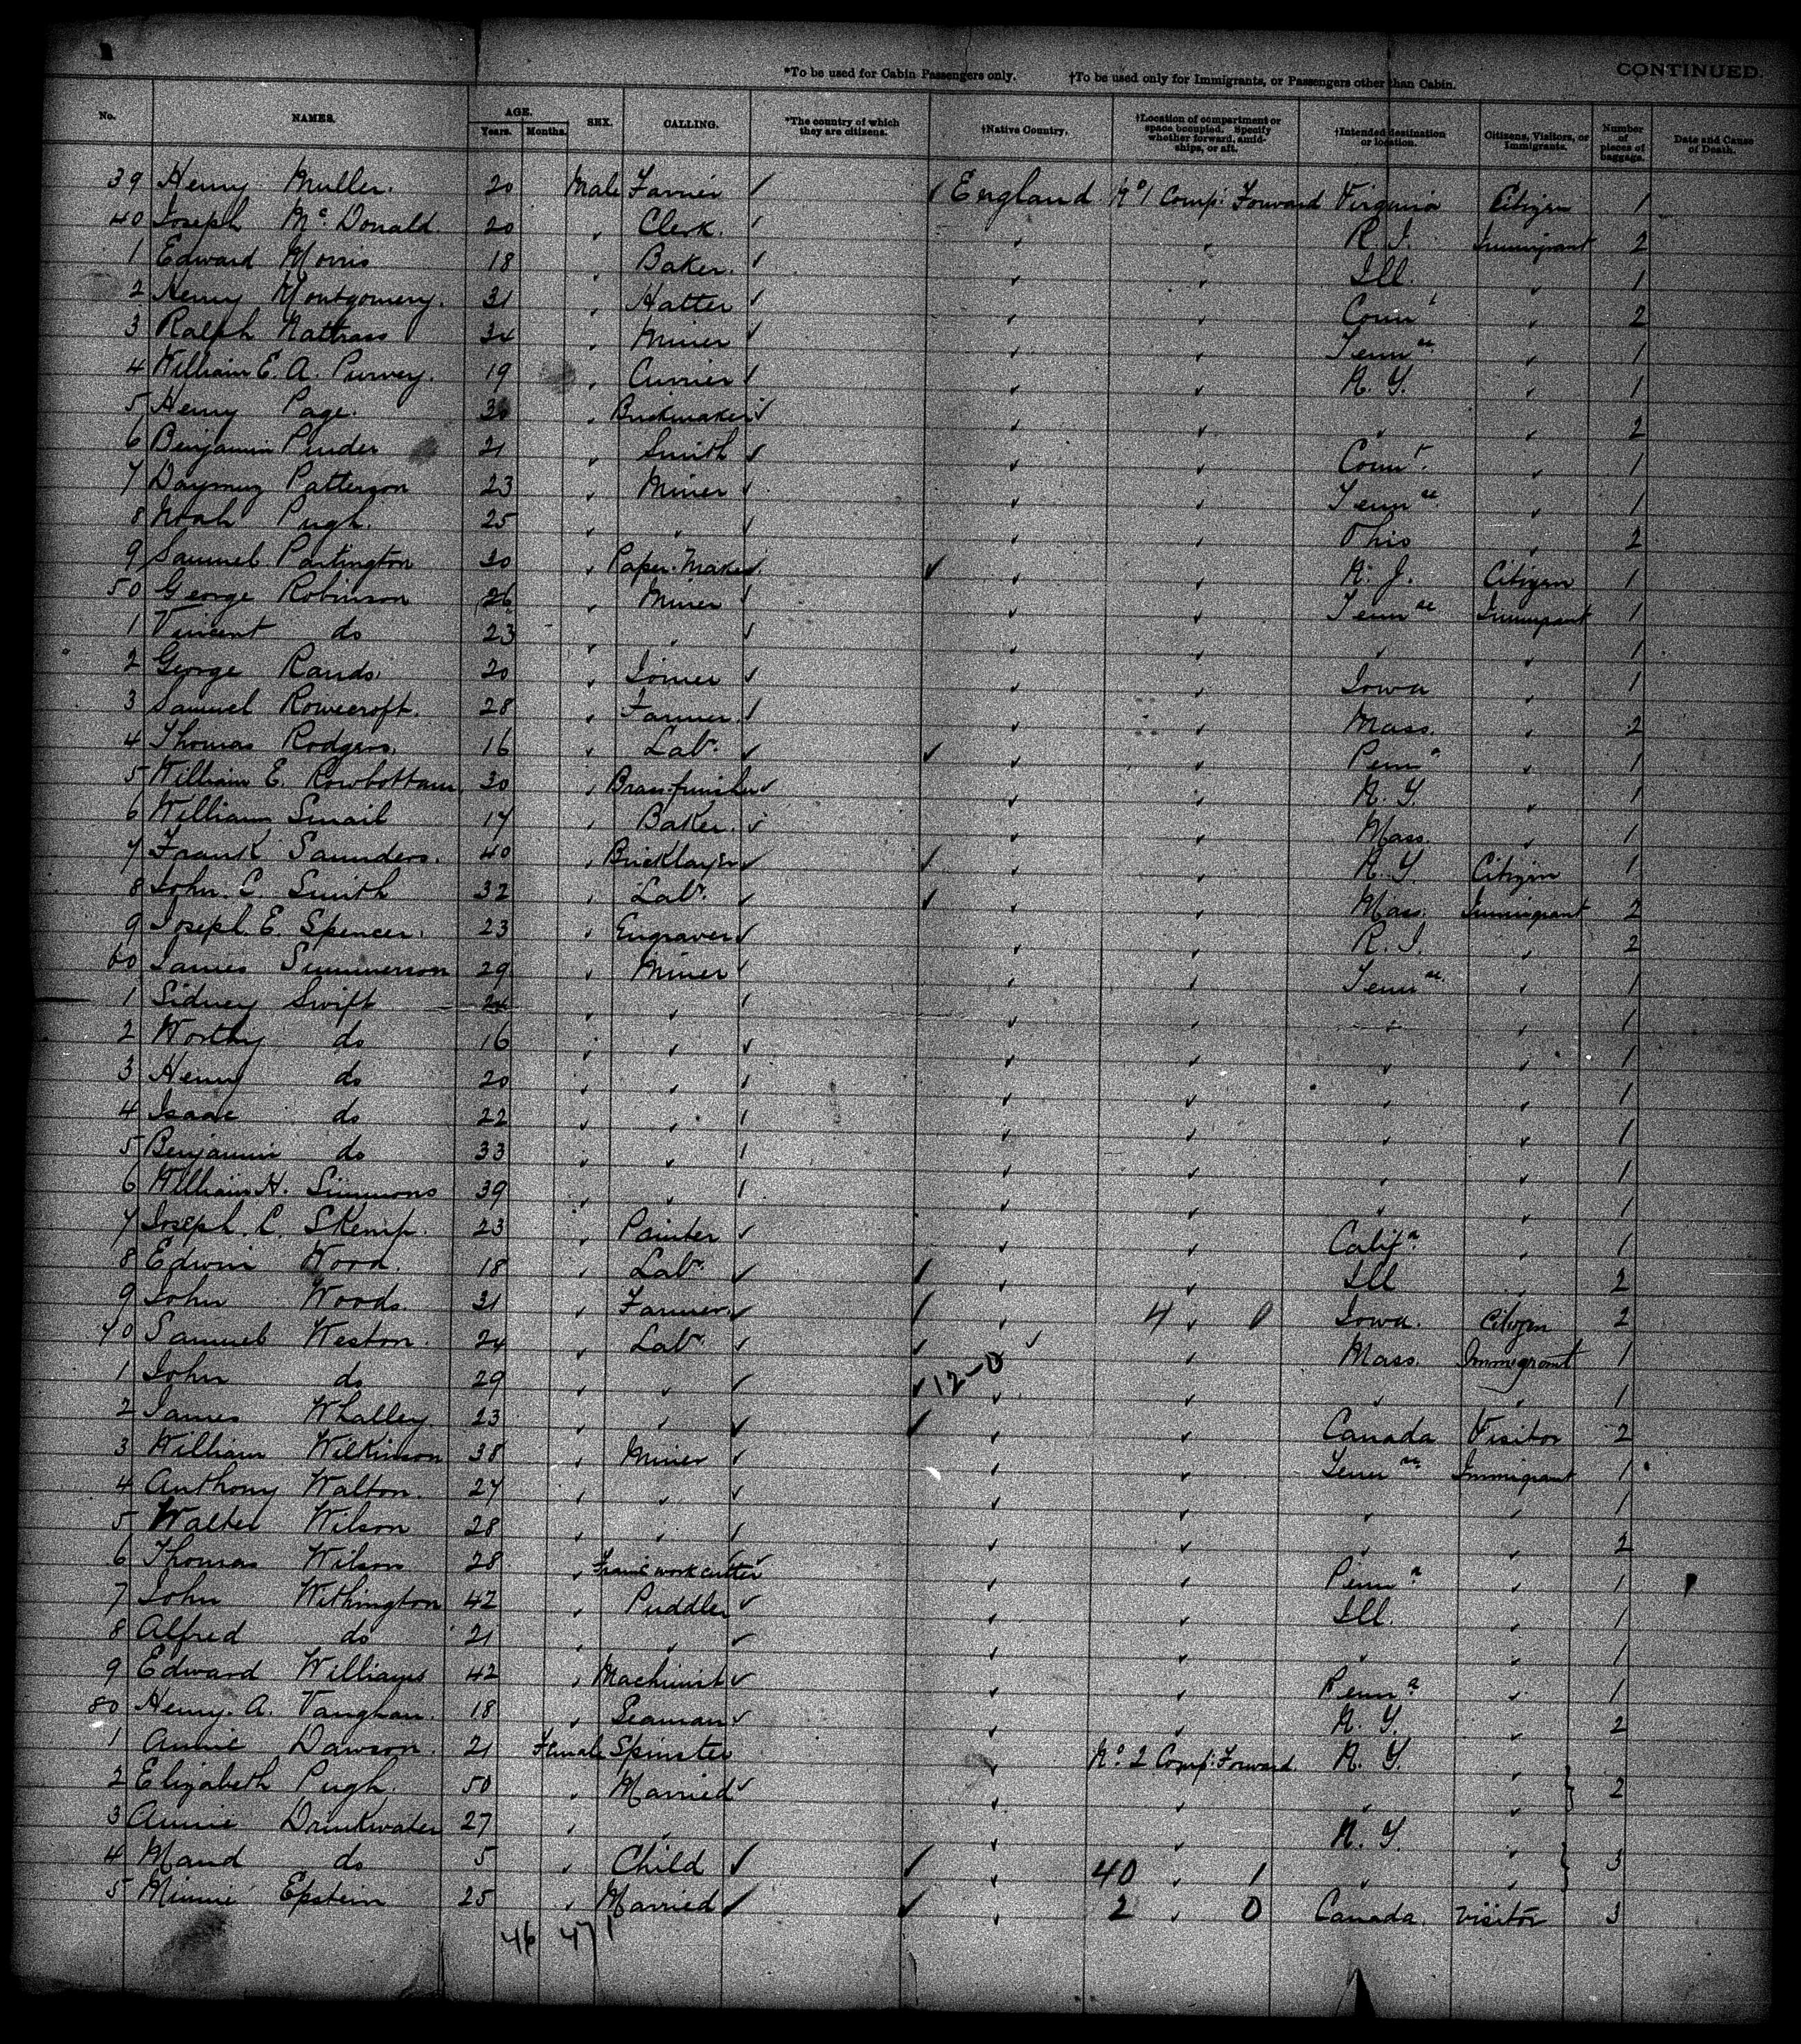 CONTINUED.
*To be used for Cabin Passengers only. †To be used only for Immigrants, or Passengers other than Cabin.
No. NAMES. AGE. Years. Months. SEX. CALLING. *The country of which they are citizens. †Native Country. †Location of compartment or space occupied. Specify whether forward, amidships, or aft. †Intended destination or location. Citizens, Visitors, or Immigrants. Number of pieces of baggage. Date and Cause of Death.
39 Henry Muller. 20 Male Farrier England No 1 Comp: Forward Virginia Citizen 1
40 Joseph McDonald. 20 " Clerk. " " R I. Immigrant 2
1 Edward Morris 18 " Baker. " " Ill. " 1
2 Henry Montgomery. 31 " Hatter " " Connt " 2
3 Ralph Nattrass 34 " Miner " " Tennee " 1
4 William E. A. Purvey. 19 " Currier " " N. Y. " 1
5 Henry Page. " Brickmaker " " " " 2
6 Benjamin Pinder 21 " Smith " " Connt. " 1
7 Patterson 23 " Miner " " Tennee " 1
8 Noah Pugh. 25 " " " " Ohio " 2
9 Samuel Partington 30 " Paper Maker " " N. J. Citizen 1
50 George Robinson 26 " Miner " " Tennee Immigrant 1
1 Vincent do 23 " " " " " " 1
2 George Rands 20 " Joiner " " Iowa " 1
3 Samuel Rowecroft. 28 " Farmer. " " Mass. " 2
4 Thomas Rodgers. 16 " Labr. " " Penna " 1
5 William E. Rowbottam 30 " Brass finisher " " N. Y. " 1
6 William Smail 17 " Baker. " " Mass. " 1
7 Frank Saunders. 40 " Bricklayer " " N. Y. Citizen 1
8 John C. Smith 32 " Labr. " " Mass. Immigrant 2
9 Joseph E. Spencer. 23 " Engraver " " R. I. " 2
60 James Summerson 29 " Miner " " Tennee " 1
1 Sidney Swift 24 " " " " " " 1
2 Worthy do 16 " " " " " " 1
3 Henry do 20 " " " " " " 1
4 Isaac do 22 " " " " " " 1
5 Benjamin do 33 " " " " " " 1
6 William H. Simmons 39 " " " " " " 1
7 Joseph. C. Skemp. 23 " Painter " " Califa " 1
8 Edwin Wood. 18 " Labr. " " Ill " 2
9 John Woods. 31 " Farmer. " 4 " 0 Iowa. Citizen 2
70 Samuel Weston. 24 " Labr. " " Mass. Immigrant 1
1 John do 29 " " 12-0 " " " " 1
2 James Whalley. 23 " " " " Canada Visitor 2
3 William Wilkinson 38 " Miner " " Tennee Immigrant 1
4 Anthony Walton. 27 " " " " " " 1
5 Walter Wilson 28 " " " " " " 2
6 Thomas Wilson. 28 " Frame work cutter " " Penna " 1
7 John Withington 42 " Puddler " " Ill. " 1
8 Alfred do 21 " " " " " " 1
9 Edward Williams 42 " Machinist " " Penna " 1
80 Henry. A. Vaughan. 18 " Seaman " " N. Y. " 2
1 Annie Dawson. 21 Female Spinster " No. 2 Comp: Forward. N. Y. "
2 Elizabeth Pugh. 50 " Married " " " " 2
3 Annie Drinkwater 27 " " " " N. Y. "
4 Maud do 5 " Child " 40 " 1 " " 3
5 Minnie Epstein 25 " Married " 2 " 0 Canada. Visitor 3
46 47 1